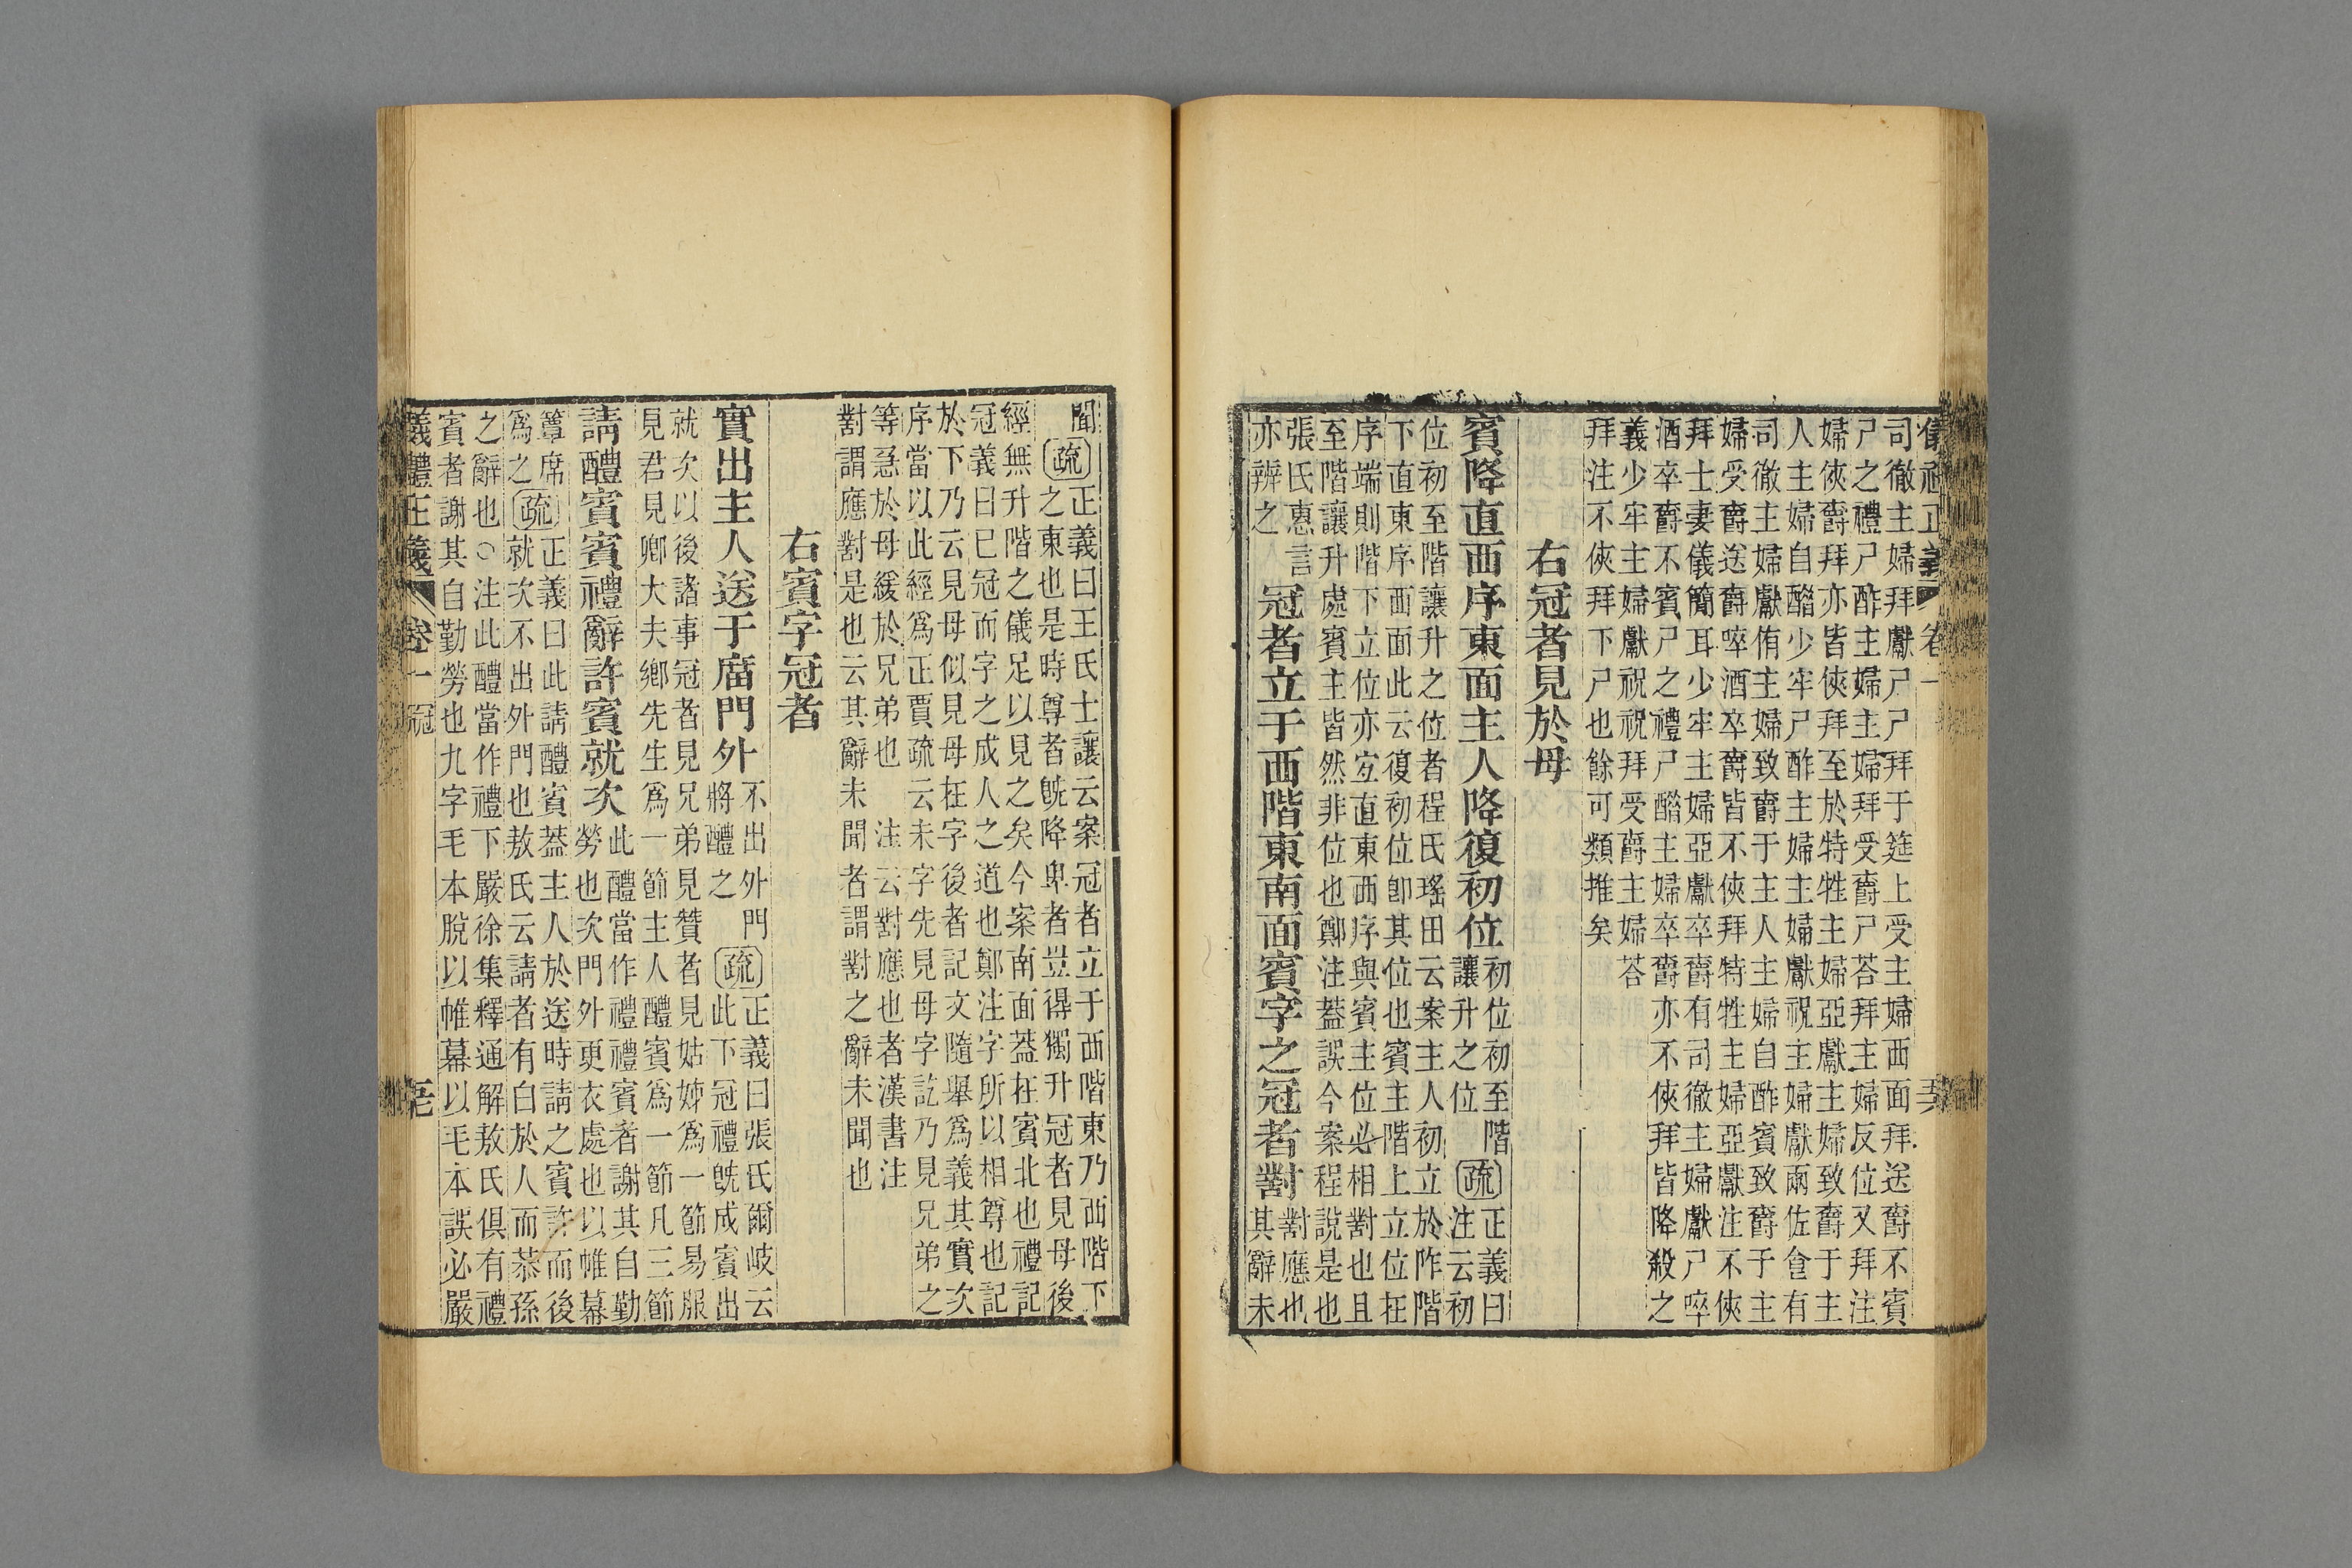 儀禮正義 卷一
司徹主婦拜獻尸尸拜于筵上受主婦西面拜送爵不賓
尸之禮尸酢主婦主婦拜受爵尸荅拜主婦反位又拜注
婦俠爵拜亦皆俠拜至於特牲主婦亞獻主婦致爵于主
人主婦自酳少牢尸酢主婦主婦獻祝主婦獻兩佐食有
司徹主婦獻侑主婦致爵于主人主婦自酢賓致爵于主
婦受爵送爵啐酒卒爵皆不俠拜特牲主婦亞獻注不俠
拜士妻儀簡耳少牢主婦亞獻卒爵有司徹主婦獻尸啐
酒卒爵不賓尸之禮尸酳主婦卒爵亦不俠拜皆降殺之
義少牢主婦獻祝祝拜受爵主婦荅
拜注不俠拜下尸也餘可類推矣
右冠者見於母
賓降直西序東面主人降復初位 初位初至階讓升之位 疏 正義曰注云初
位初至階讓升之位者程氏瑤田云案主人初立於阼階
下直東序西面此云復初位卽其位也賓主階上立位在
序端則階下立位亦宜直東西序與賓主位必相對也且
至階讓升處賓主皆然非位也鄭注蓋誤今案程說是也
張氏惠言亦辨之
冠者立于西階東南面賓字之冠者對 對應也其辭未
聞 疏 正義曰王氏士讓云案冠者立于西階東乃西階下
之東也是時尊者旣降卑者豈得獨升冠者見母後
經無升階之儀足以見之矣今案南面蓋在賓北也禮記
冠義曰已冠而字之成人之道也鄭注字所以相尊也記
於下乃云見母似見母在字後者記文隨舉爲義其實次
序當以此經爲正賈疏云未字先見母字訖乃見兄弟之
等急於母緩於兄弟也 注云對應也者漢書注
對謂應對是也云其辭未聞者謂對之辭未聞也
右賓字冠者
賓出主人送于廟門外 不出外門將醴之 疏 正義曰張氏爾岐云此下冠禮旣成賓出
就次以後諸事冠者見兄弟見贊者見姑姊爲一節易服
見君見卿大夫鄉先生爲一節主人醴賓爲一節凡三節
請醴賓賓禮辭許賓就次 此醴當作禮禮賓者謝其自勤勞也次門外更衣處也以帷幕
簟席爲之 疏 正義曰此請醴賓蓋主人於送時請之賓許而後就次不出外門也敖氏云請者有白於人而恭孫
之辭也○注此醴當作禮下嚴徐集釋通解敖氏俱有禮
賓者謝其自勤勞也九字毛本脫以帷幕以毛本誤必嚴
儀禮正義 卷一 冠